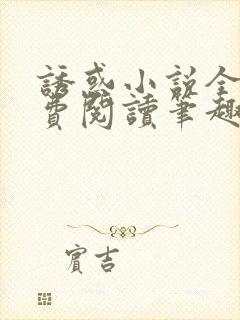 誘惑小說全
費閱讀筆趣
賓吉